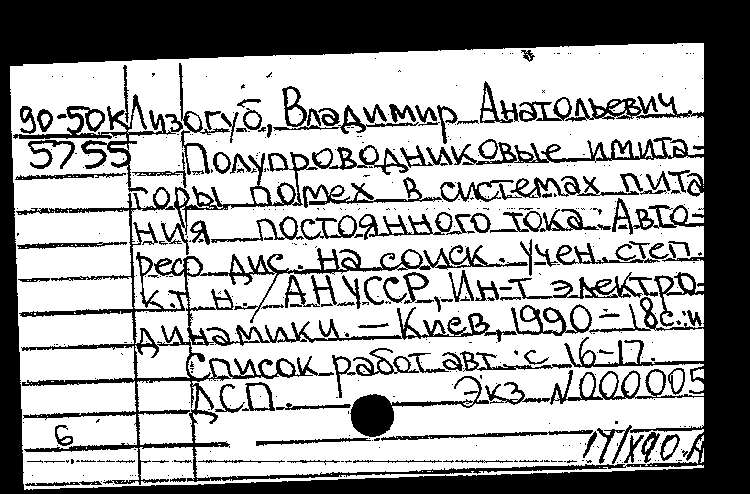 90-50к Лизогуб, Владимир Анатольевич.
5755 Полупроводниковые имита-
торы помех в системах пита
ния постоянного тока: Авто-
реф дис. на соиск. учен. степ.
к.т н. /АН УССР, Ин-т электро-
динамики. — Киев, 1990 - 18с.:и
Список работ авт.: с 16-17.
ДСП. Экз N 000005
6